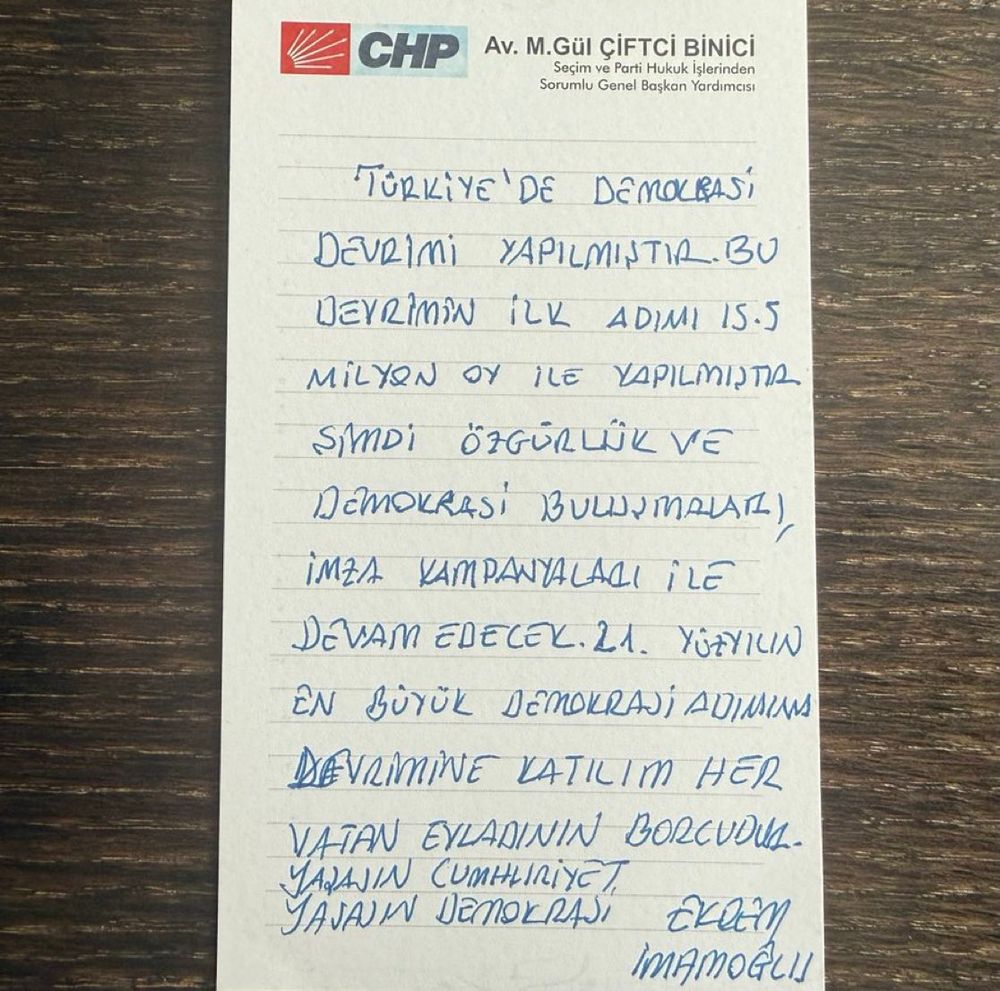 CHP Av. M.Gül ÇİFTCİ BİNİCİ
Seçim ve Parti Hukuk İşlerinden
Sorumlu Genel Başkan Yardımcısı
TÜRKİYE'DE DEMOKRASİ
DEVRİMİ YAPILMIŞTIR. BU
DEVRİMİN İLK ADIMI 15.5
MİLYON OY İLE YAPILMIŞTIR
ŞİMDİ ÖZGÜRLÜK VE
DEMOKRASİ BULUŞMALARI,
İMZA KAMPANYALARI İLE
DEVAM EDECEK. 21. YÜZYILIN
EN BÜYÜK DEMOKRASİ ADIMINA
DEVRİMİNE KATILIM HER
VATAN EVLADININ BORCUDUR.
YAŞASIN CUMHURİYET,
YAŞASIN DEMOKRASİ EKREM
İMAMOĞLU